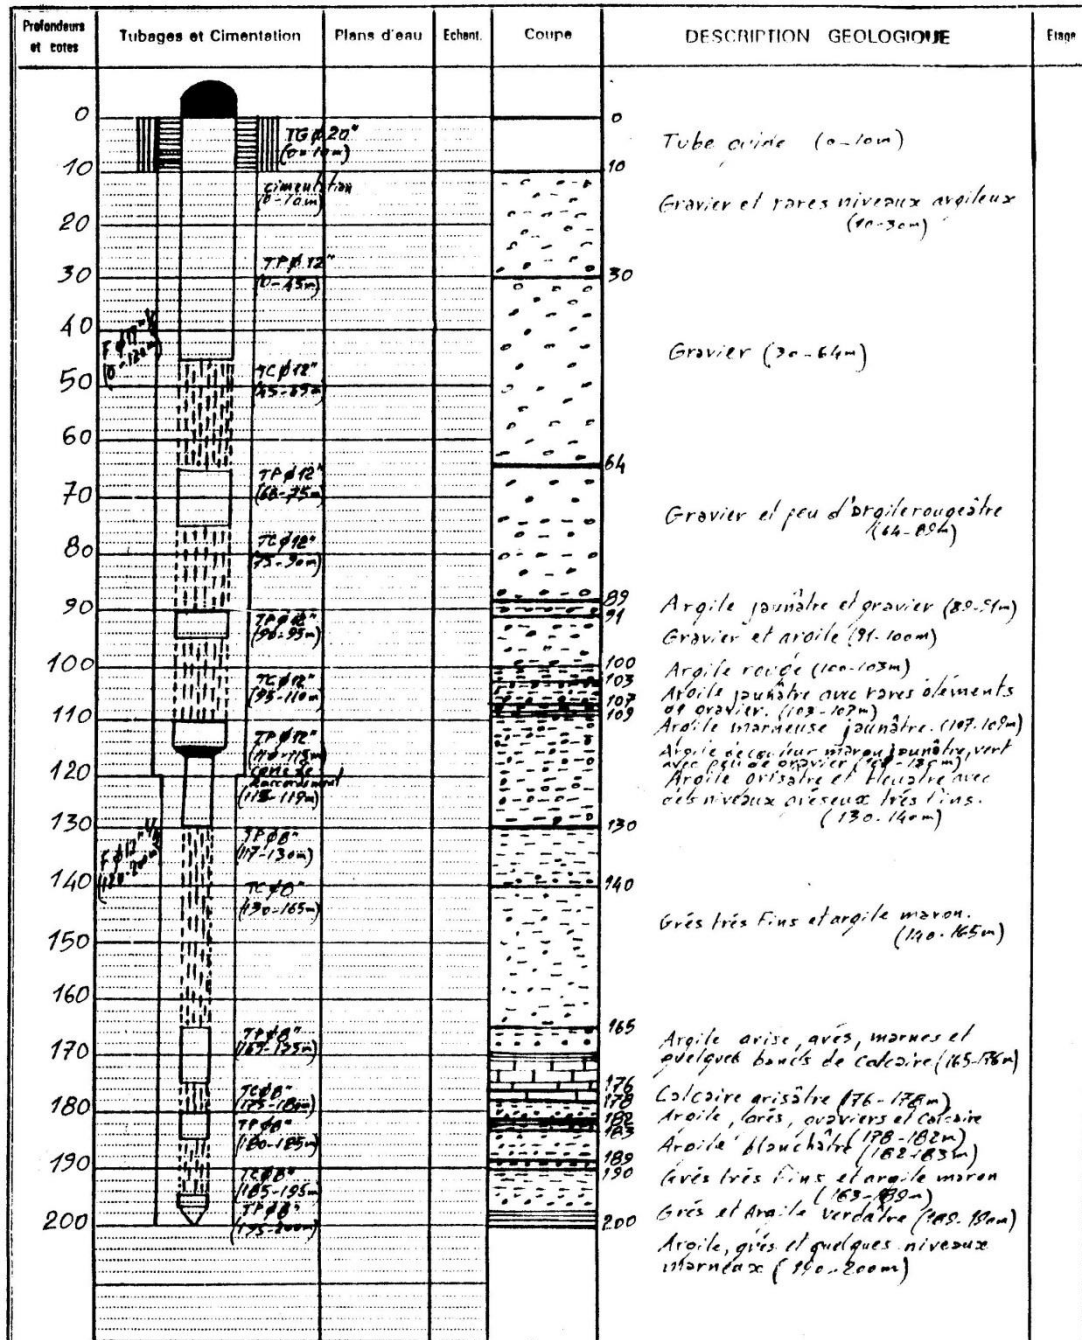 Profondeurs et cotes
Tubages et Cimentation
Plans d'eau
Echant.
Coupe
DESCRIPTION GEOLOGIQUE
Etage
0
10
20
30
40
50
60
70
80
90
100
110
120
130
140
150
160
170
180
190
200
TG ø 20"
(0-10m)
cimentation
(0-10m)
TP ø 12"
(0-45m)
TC ø 12"
(45-65m)
TP ø 12"
(65-75m)
TC ø 12"
(75-90m)
TP ø 12"
(90-95m)
TC ø 12"
(95-110m)
TP ø 12"
(110-115m)
cone de
Raccordement
(115-119m)
TP ø 8"
(117-130m)
TC ø 8"
(130-165m)
TP ø 8"
(165-175m)
TC ø 8"
(175-180m)
TP ø 8"
(180-185m)
TC ø 8"
(185-195m)
TP ø 8"
(195-200m)
F ø 17" 1/2
(0-120m)
F ø 12" 1/4
(120-200m)
0
10
30
64
89
91
100
103
107
109
130
140
165
176
178
182
183
189
190
200
Tube guide (0-10m)
Gravier et rares niveaux argileux
(10-30m)
Gravier (30-64m)
Gravier et peu d'argile rougeâtre
(64-89m)
Argile jaunâtre et gravier (89-91m)
Gravier et argile (91-100m)
Argile rouge (100-103m)
Argile jaunâtre avec rares éléments
de gravier. (103-107m)
Argile marneuse jaunâtre. (107-109m)
Argile de couleur maron jaunâtre, vert
avec peu de gravier (109-130m)
Argile grisâtre et bleuâtre avec
des niveaux gréseux très fins.
(130-140m)
Grés trés Fins et argile maron.
(140-165m)
Argile grise, grés, marnes et
quelques bancs de calcaire (165-176m)
Calcaire grisâtre (176-178m)
Argile, grés, graviers et calcaire
(178-182m)
Argile blanchâtre (182-183m)
Grés trés Fins et argile maron
(183-189m)
Grés et Argile verdâtre (189-190m)
Argile, grés et quelques niveaux
marneux (190-200m)